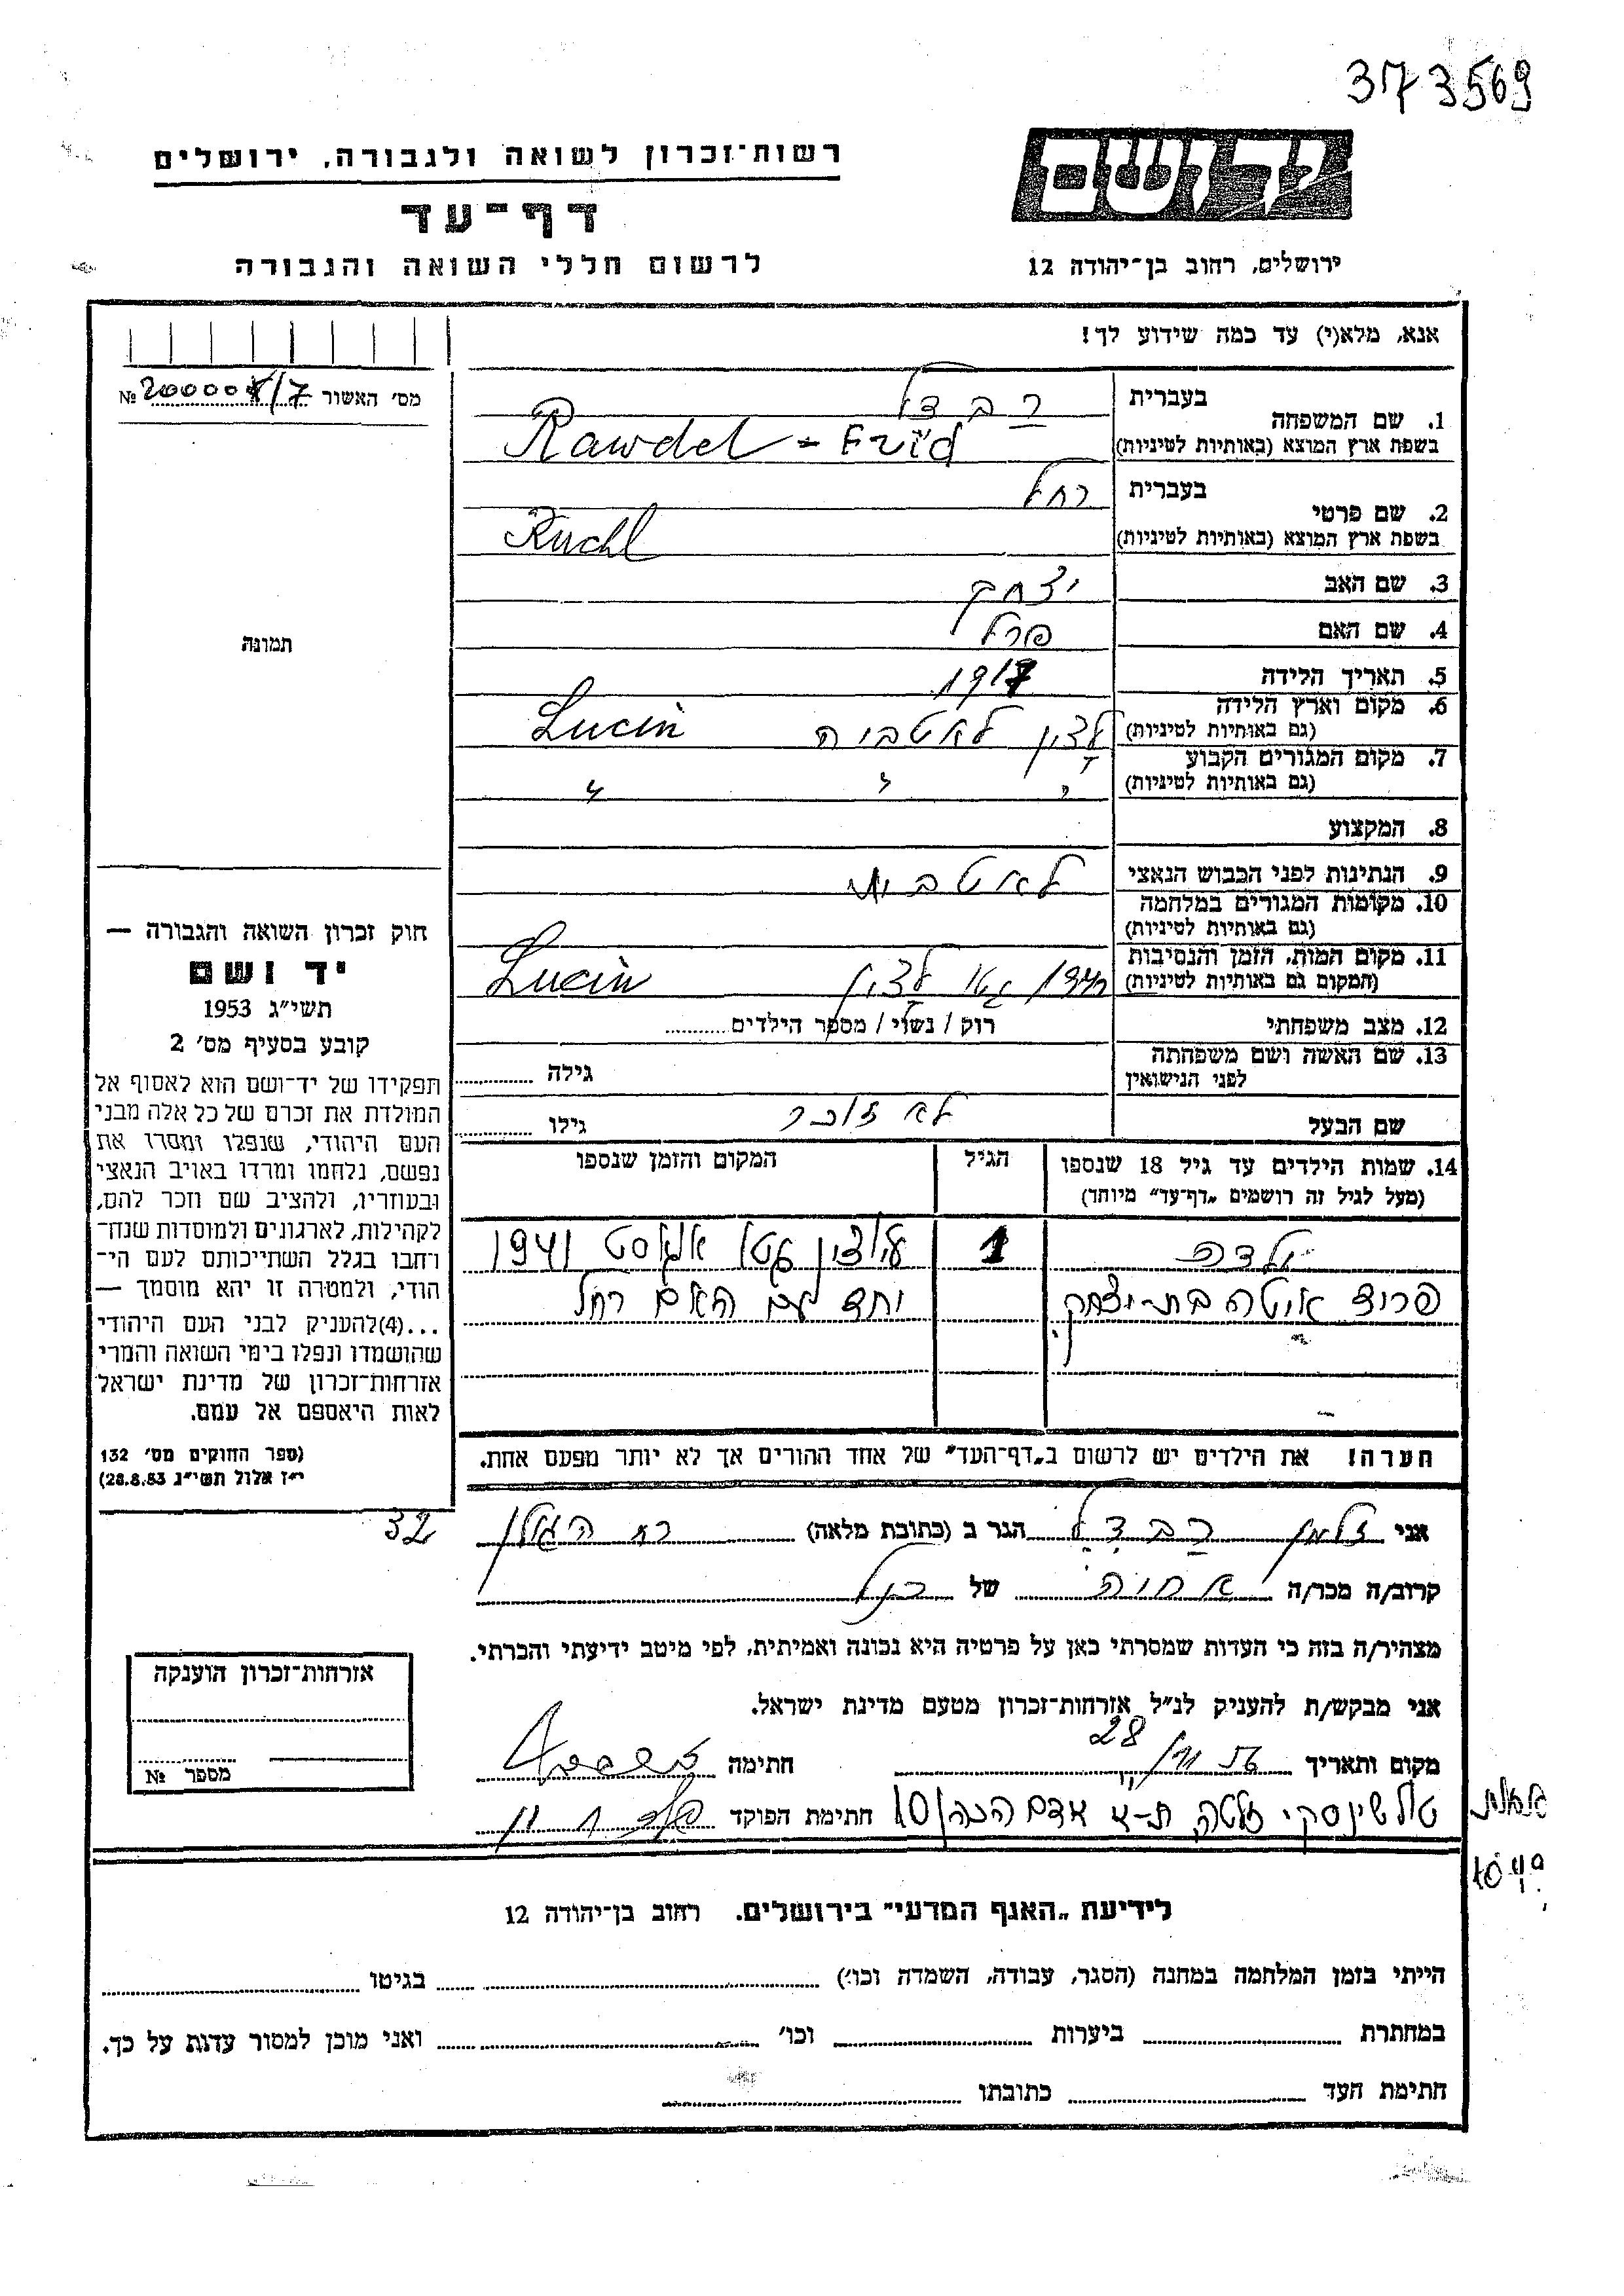 373569
יד ושם
רשות־זכרון לשואה ולגבורה, ירושלים
דף־עד
ירושלים, רחוב בן־יהודה 12
לרשום חללי השואה והגבורה
אנא, מלא(י) עד כמה שידוע לך!
מס׳ האשור №
1. שם המשפחה
בעברית רבדל
בשפת ארץ המוצא (באותיות לטיניות) Rawdel - Frid
2. שם פרטי
בעברית רחל
בשפת ארץ המוצא (באותיות לטיניות) Ruchl
3. שם האב יצחק
4. שם האם פרל
5. תאריך הלידה 1917
6. מקום וארץ הלידה
(גם באותיות לטיניות) לצין לאטביה Lucin
7. מקום המגורים הקבוע
(גם באותיות לטיניות) " " "
8. המקצוע
9. הנתינות לפני הכבוש הנאצי לאטבית
10. מקומות המגורים במלחמה
(גם באותיות לטיניות)
11. מקום המות, הזמן והנסיבות
(המקום גם באותיות לטיניות) לצין Lucin
12. מצב משפחתי רוק / נשוי / מספר הילדים
13. שם האשה ושם משפחתה
לפני הנישואין גילה
שם הבעל לא זוכר גילו
14. שמות הילדים עד גיל 18 שנספו
(מעל לגיל זה רושמים „דף־עד” מיוחד)
הגיל
המקום והזמן שנספו
ילדה 1 אוגוסט 1941
פריד איטה בת־יצחק יחד עם האם רחל
הערה! את הילדים יש לרשום ב„דף־העד” של אחד ההורים אך לא יותר מפעם אחת.
תמונה
חוק זכרון השואה והגבורה —
יד ושם
תשי״ג 1953
קובע בסעיף מס׳ 2
תפקידו של יד־ושם הוא לאסוף אל
המולדת את זכרם של כל אלה מבני
העם היהודי, שנפלו ומסרו את
נפשם, נלחמו ומרדו באויב הנאצי
ובעוזריו, ולהציב שם וזכר להם,
לקהילות, לארגונים ולמוסדות שנח־
רחבו בגלל השתייכותם לעם הי־
הודי, ולמטרה זו יהא מוסמך —
...(4) להעניק לבני העם היהודי
שהושמדו ונפלו בימי השואה והמרי
אזרחות־זכרון של מדינת ישראל
לאות היאספם אל עמם.
(ספר החוקים מס׳ 132
י״ז אלול תשי״ג 28.8.53)
אני זלמן רבדל הגר ב (כתובת מלאה) רח הגולן 32
קרוב/ה מכר/ה אחיה של רחל
מצהיר/ה בזה כי העדות שמסרתי כאן על פרטיה היא נכונה ואמיתית, לפי מיטב ידיעתי והכרתי.
אני מבקש/ת להעניק לנ״ל אזרחות־זכרון מטעם מדינת ישראל.
מקום ותאריך 28 חתימה
טולשינסקי זלטה ת-א אדם הכהן 10 חתימת הפוקד
אזרחות־זכרון הוענקה
מספר №
לידיעת „האגף המדעי” בירושלים. רחוב בן־יהודה 12
הייתי בזמן המלחמה במחנה (הסגר, עבודה, השמדה וכו׳) בגיטו
במחתרת ביערות וכו׳ ואני מוכן למסור עדות על כך.
חתימת העד כתובתו